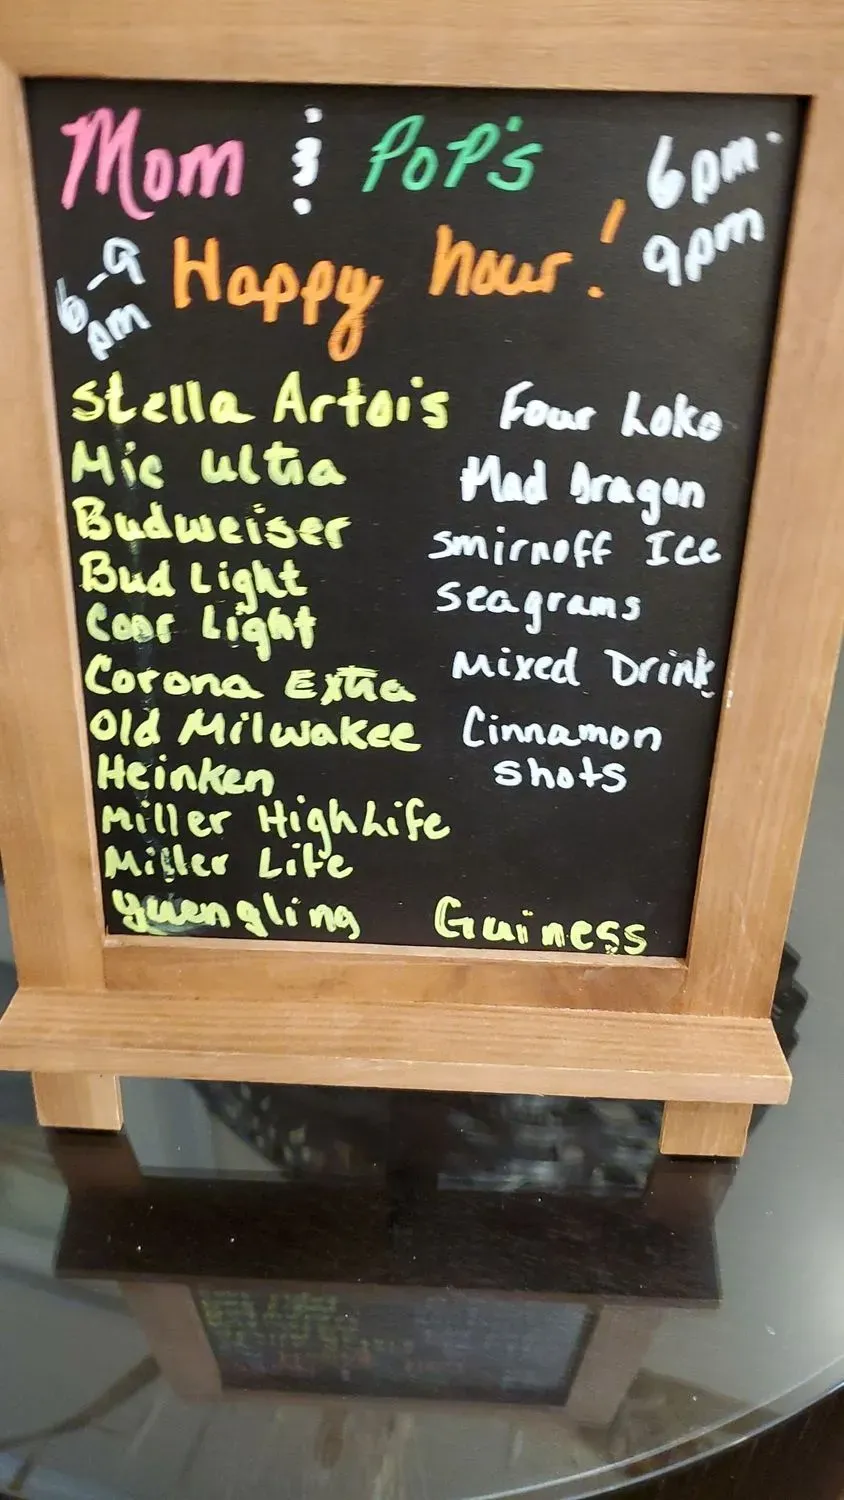 Mom & POP's
6pm-
9pm
6-9
pm
Happy hour!
Stella Artois
Mic Ultra
Budweiser
Bud Light
Coor Light
Corona Extra
Old Milwakee
Heinken
Miller High Life
Miller Lite
Yuengling
Four Loko
Mad Dragon
Smirnoff Ice
Seagrams
Mixed Drink
Cinnamon
Shots
Guiness